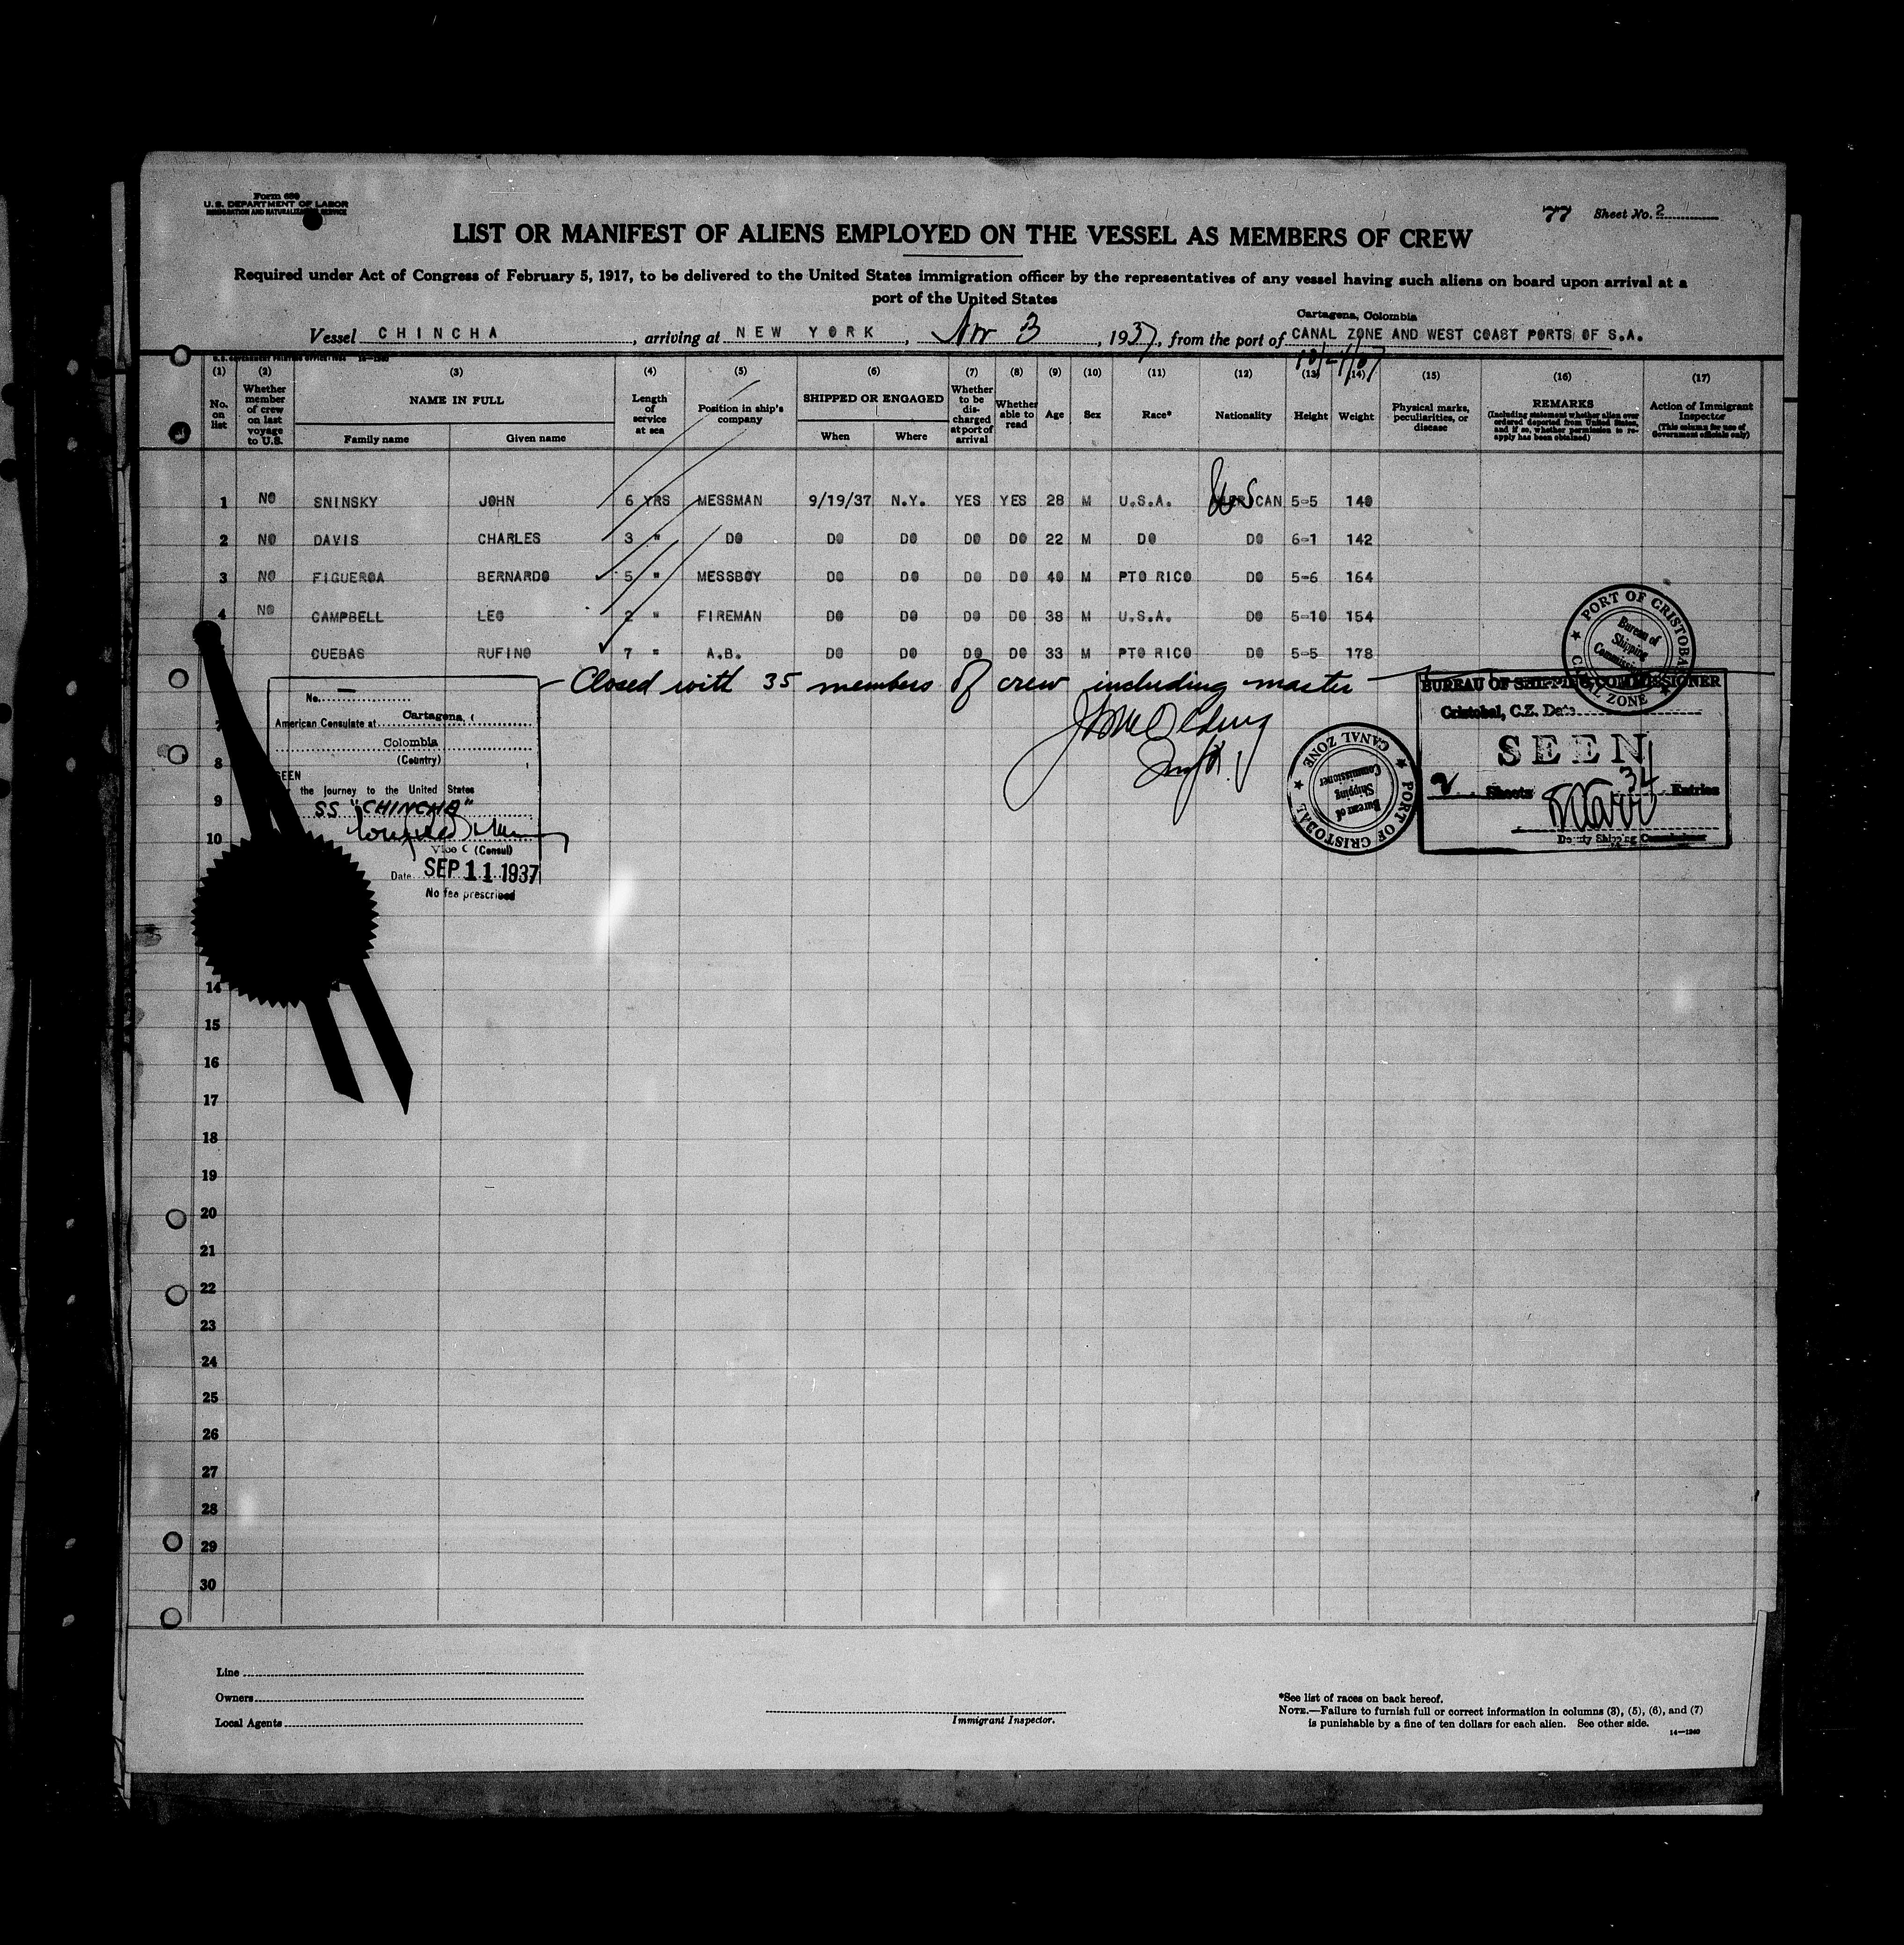 Form 689
U.S. DEPARTMENT OF LABOR
IMMIGRATION AND NATURALIZATION SERVICE
77 Sheet No. 2
LIST OR MANIFEST OF ALIENS EMPLOYED ON THE VESSEL AS MEMBERS OF CREW
Required under Act of Congress of February 5, 1917, to be delivered to the United States immigration officer by the representatives of any vessel having such aliens on board upon arrival at a
port of the United States
Cartagena, Colombia
Vessel CHINCHA, arriving at NEW YORK, Nov 3, 1937, from the port of CANAL ZONE AND WEST COAST PORTS OF S.A.
(1) (2) (3) (4) (5) (6) (7) (8) (9) (10) (11) (12) (13) (14) (15) (16) (17)
No. on list
Whether member of crew on last voyage to U.S.
NAME IN FULL
Family name Given name
Length of service at sea
Position in ship's company
SHIPPED OR ENGAGED
When Where
Whether to be discharged at port of arrival
Whether able to read
Age
Sex
Race*
Nationality
Height
Weight
Physical marks, peculiarities, or disease
REMARKS
(Including statement whether alien ever ordered deported from United States, and if so, whether permission to reapply has been obtained)
Action of Immigrant Inspector
(This column for use of Government officials only)
1 NO SNINSKY JOHN 6 YRS MESSMAN 9/19/37 N.Y. YES YES 28 M U.S.A. US 5-5 140
2 NO DAVIS CHARLES 3 " DO DO DO DO DO 22 M DO DO 6-1 142
3 NO FIGUEROA BERNARDO 5 " MESSBOY DO DO DO DO 40 M PTO RICO DO 5-6 164
4 NO CAMPBELL LEO 2 " FIREMAN DO DO DO DO 38 M U.S.A. DO 5-10 154
CUEBAS RUFINO 7 " A.B. DO DO DO DO 33 M PTO RICO DO 5-5 178
Closed with 35 members of crew including master
No.
American Consulate at Cartagena,
Colombia
(Country)
SEEN
the journey to the United States
SS "CHINCHA"
Vice C (Consul)
Date SEP 11 1937
No fee prescribed
PORT OF CRISTOBAL
CANAL ZONE
Bureau of
Shipping
Commissioner
PORT OF CRISTOBAL
CANAL ZONE
Bureau of
Shipping
Commissioner
BUREAU OF SHIPPING COMMISSIONER
Cristobal, C.Z. Date
SEEN
2 Sheets 34 Entries
Deputy Shipping Commissioner
7
8
9
10
14
15
16
17
18
19
20
21
22
23
24
25
26
27
28
29
30
Line
Owners
Local Agents
Immigrant Inspector.
*See list of races on back hereof.
NOTE.—Failure to furnish full or correct information in columns (3), (5), (6), and (7)
is punishable by a fine of ten dollars for each alien. See other side.
14—1240